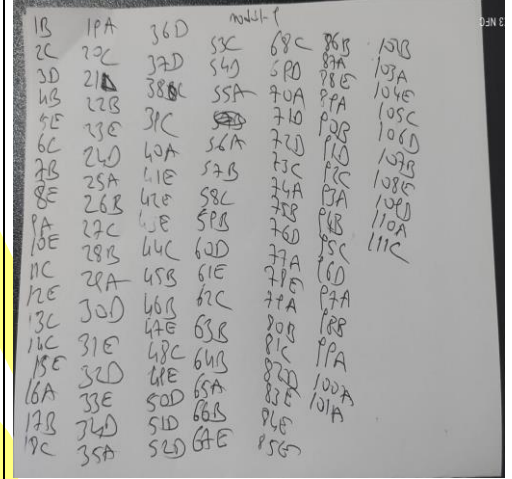 1B
2C
3D
4B
5E
6C
7B
8E
9A
10E
11C
12E
13C
14C
15E
16A
17B
18C
19A
20C
21D
22B
23E
24D
25A
26B
27C
28B
29A
30D
31E
32D
33E
34D
35A
36D
37D
38C
39C
40A
41E
42E
43E
44C
45B
46B
47E
48C
49E
50D
51D
52D
53C
54D
55A
56A
57B
58C
59B
60D
61E
62C
63B
64B
65A
66B
67E
68C
69D
70A
71D
72D
73C
74A
75B
76D
77A
78E
79A
80B
81C
82D
83E
84E
85E
86B
87A
88E
89A
90B
91D
92C
93A
94B
95C
96D
97A
98B
99A
100A
101A
102B
103A
104E
105C
106D
107B
108E
109D
110A
111C